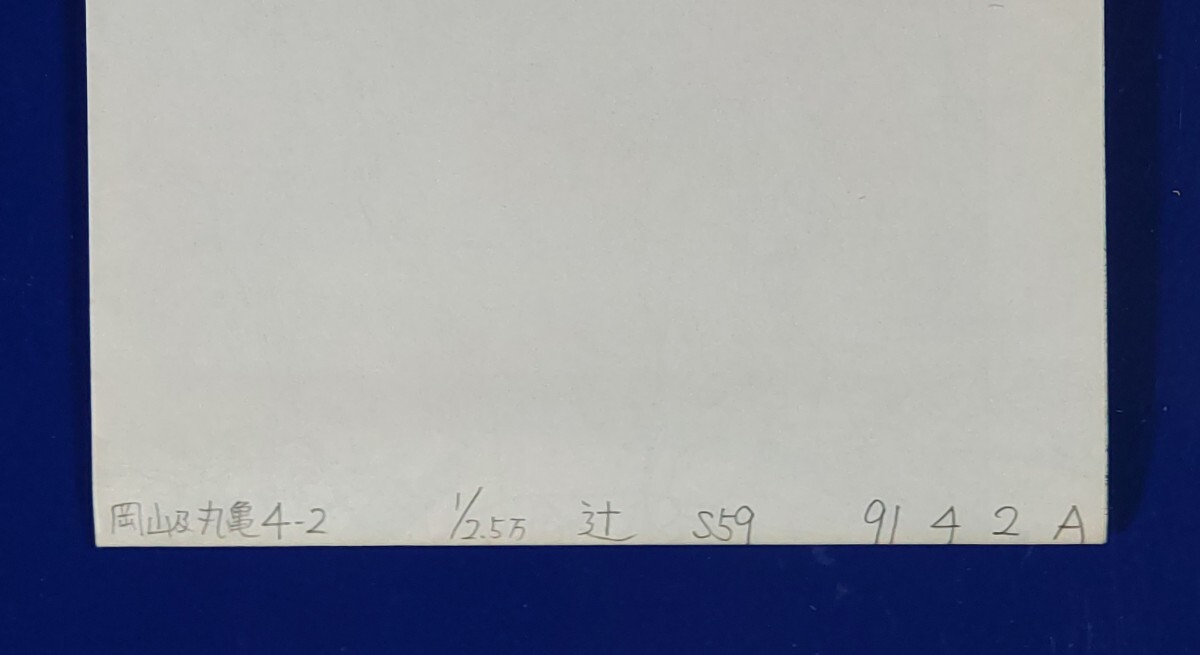 岡山及丸亀4-2 1/2.5万 辻 S59 91 4 2 A